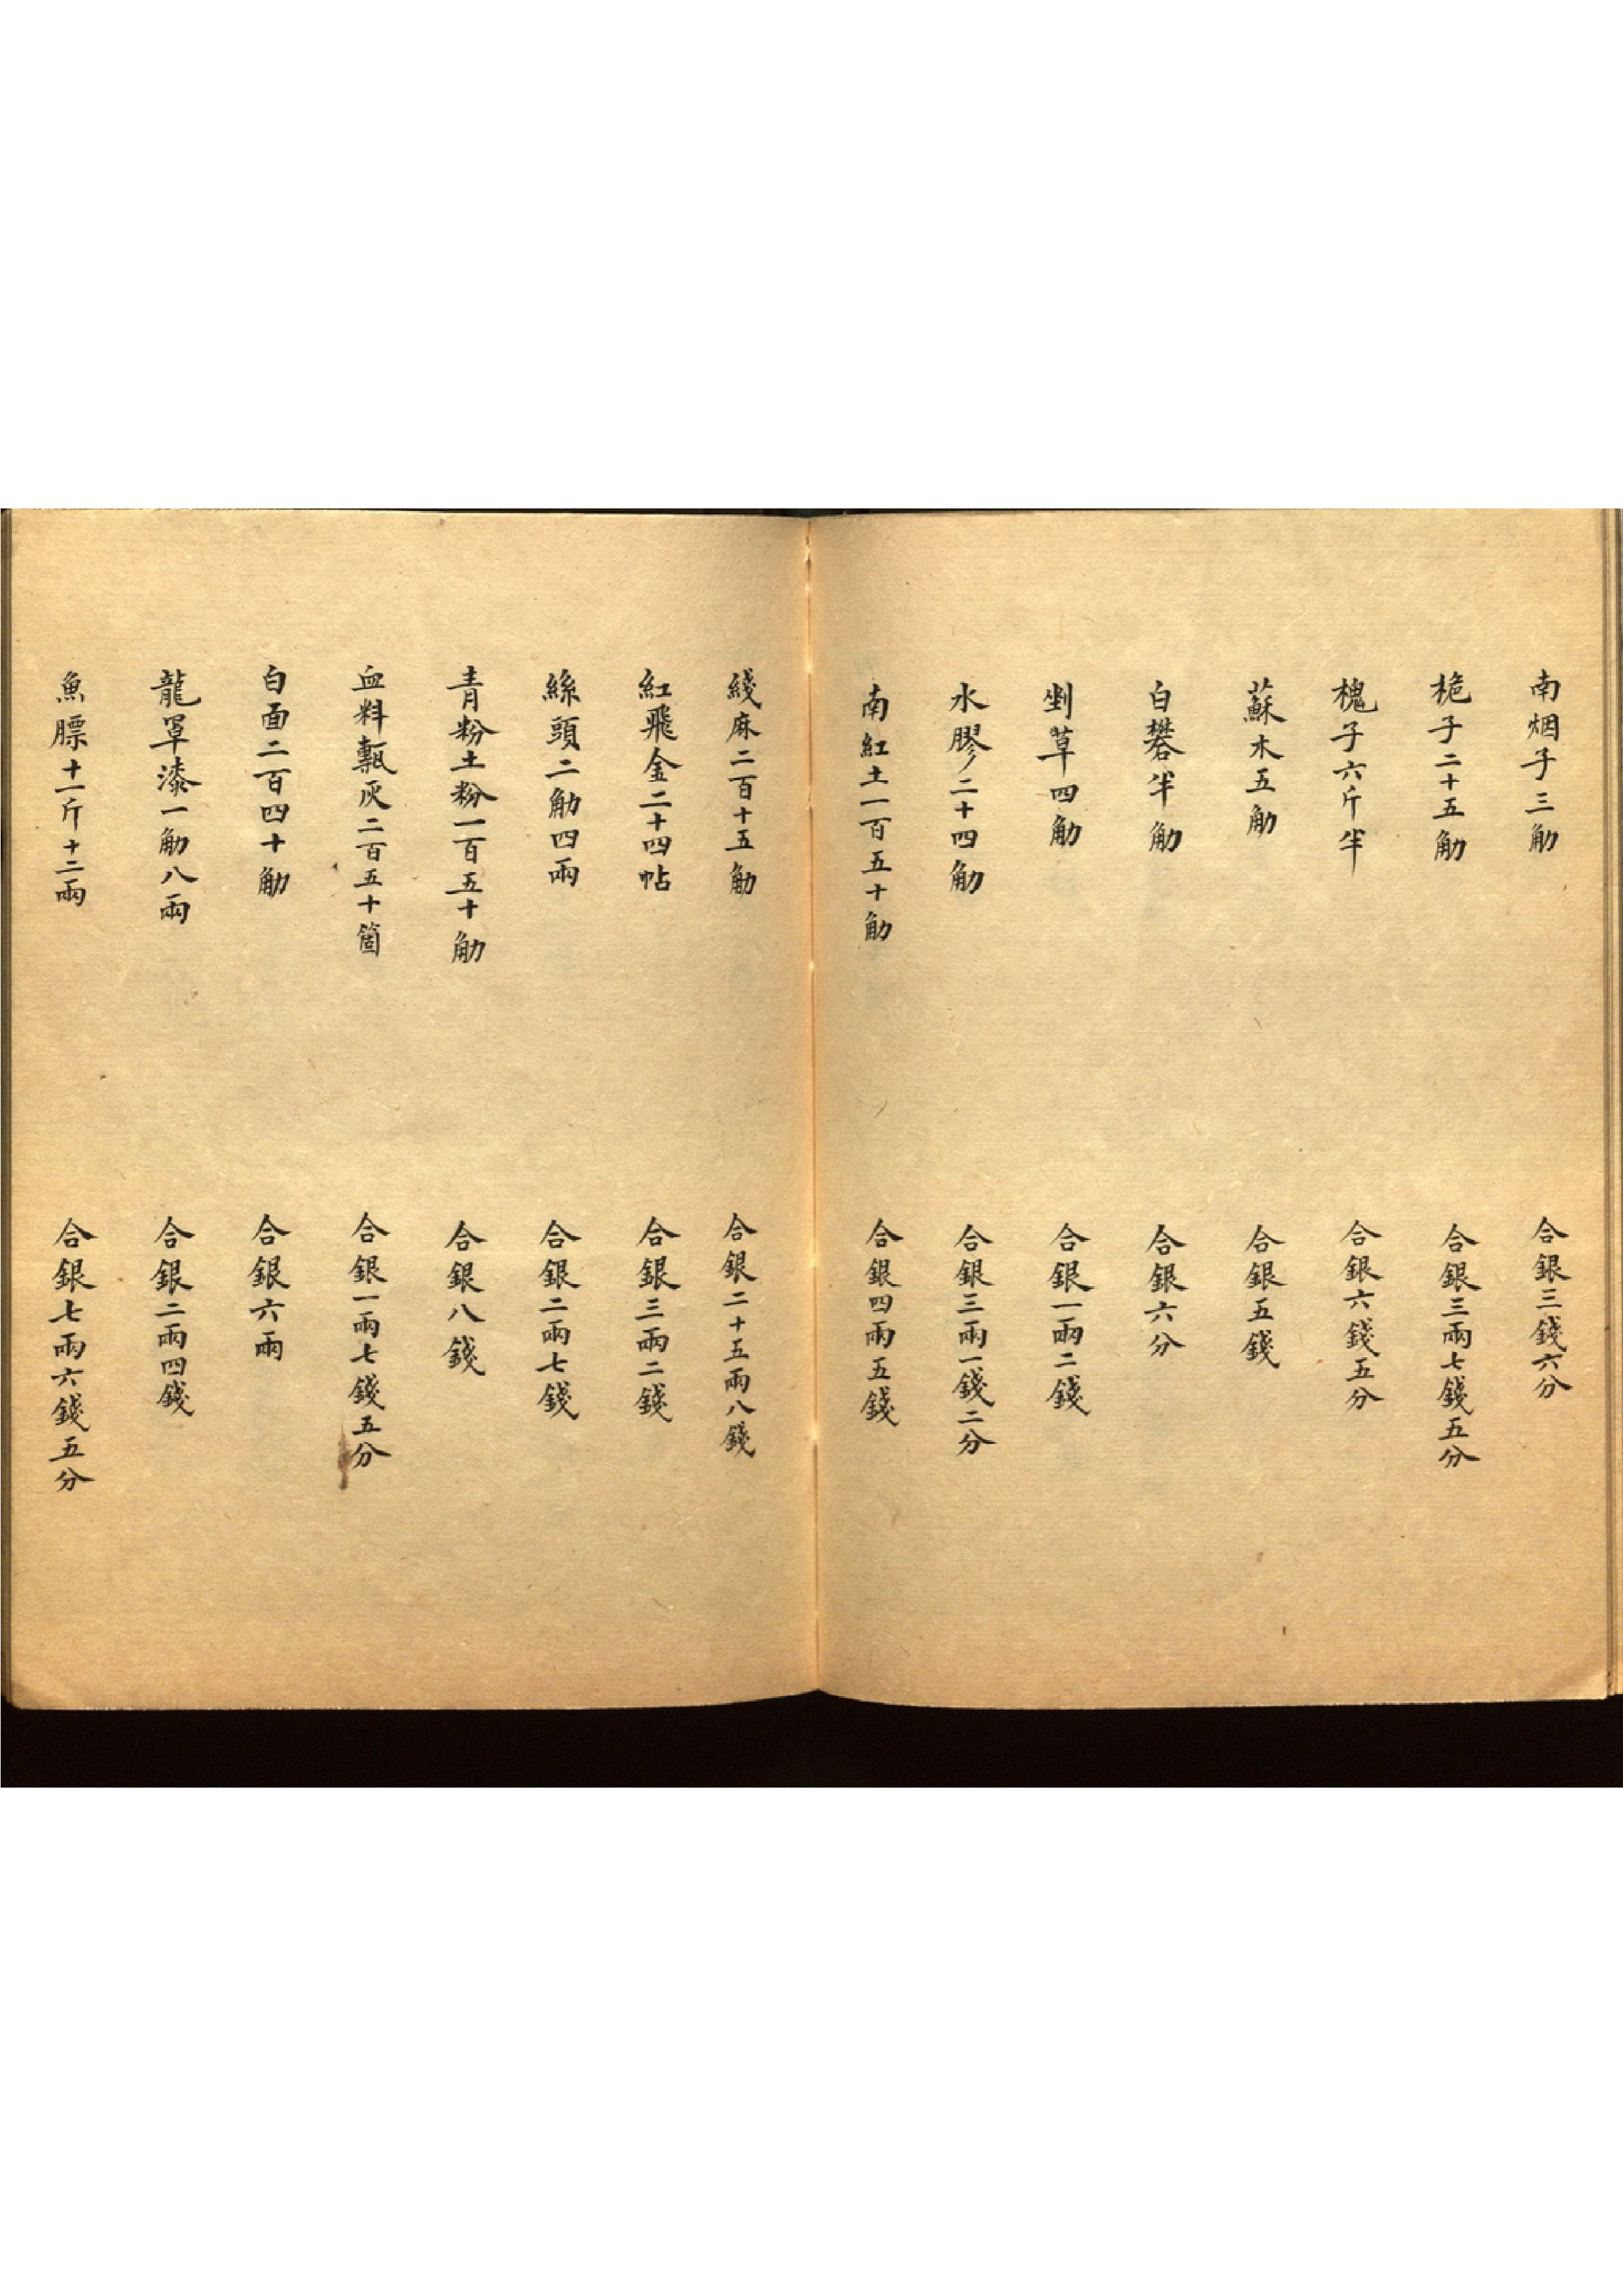 南烟子三觔　合銀三錢六分
栀子二十五觔　合銀三兩七錢五分
槐子六斤半　合銀六錢五分
蘇木五觔　合銀五錢
白礬半觔　合銀六分
剉草四觔　合銀一兩二錢
水膠二十四觔　合銀三兩一錢二分
南紅土一百五十觔　合銀四兩五錢
綫麻二百十五觔　合銀二十五兩八錢
紅飛金二十四帖　合銀三兩二錢
絲頭二觔四兩　合銀二兩七錢
青粉土粉一百五十觔　合銀八錢
血料甎灰二百五十箇　合銀一兩七錢五分
白面二百四十觔　合銀六兩
龍罩漆一觔八兩　合銀二兩四錢
魚膘十一斤十二兩　合銀七兩六錢五分